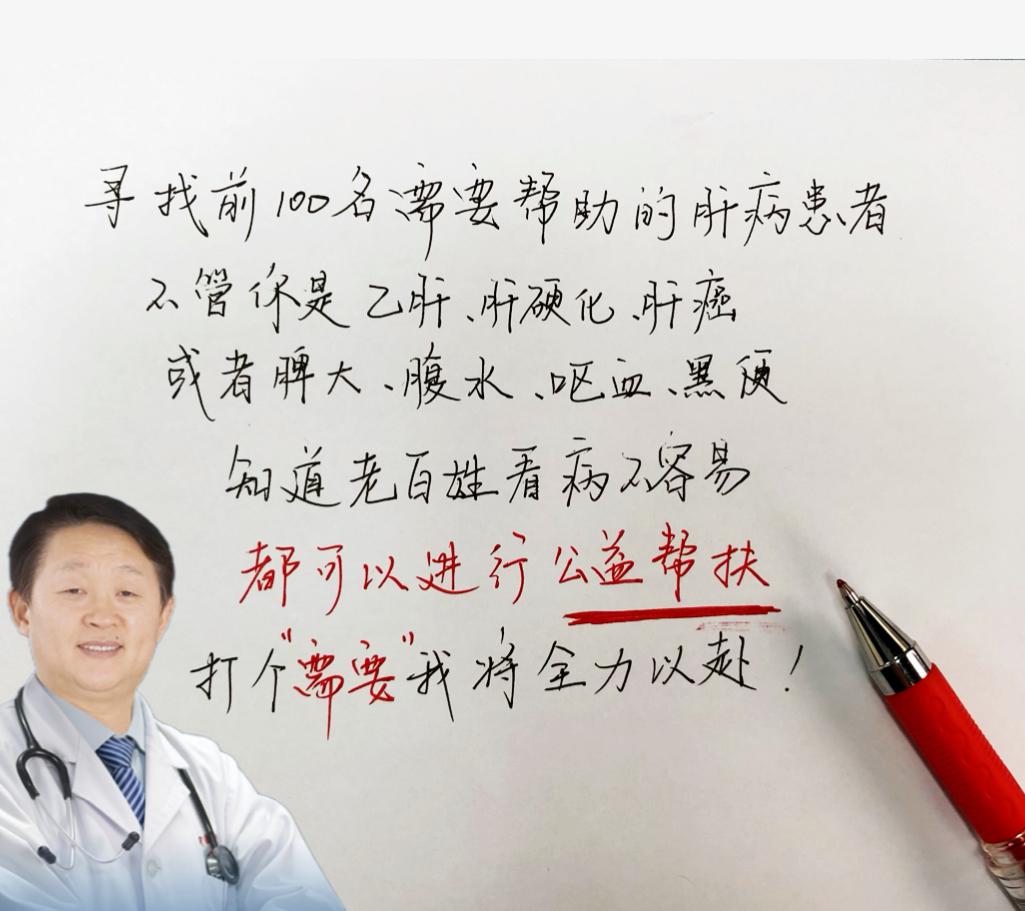 寻找前100名需要帮助的肝病患者
不管你是乙肝、肝硬化、肝癌
或者脾大、腹水、呕血、黑便
知道老百姓看病不容易
都可以进行公益帮扶
打个"需要"我将全力以赴!